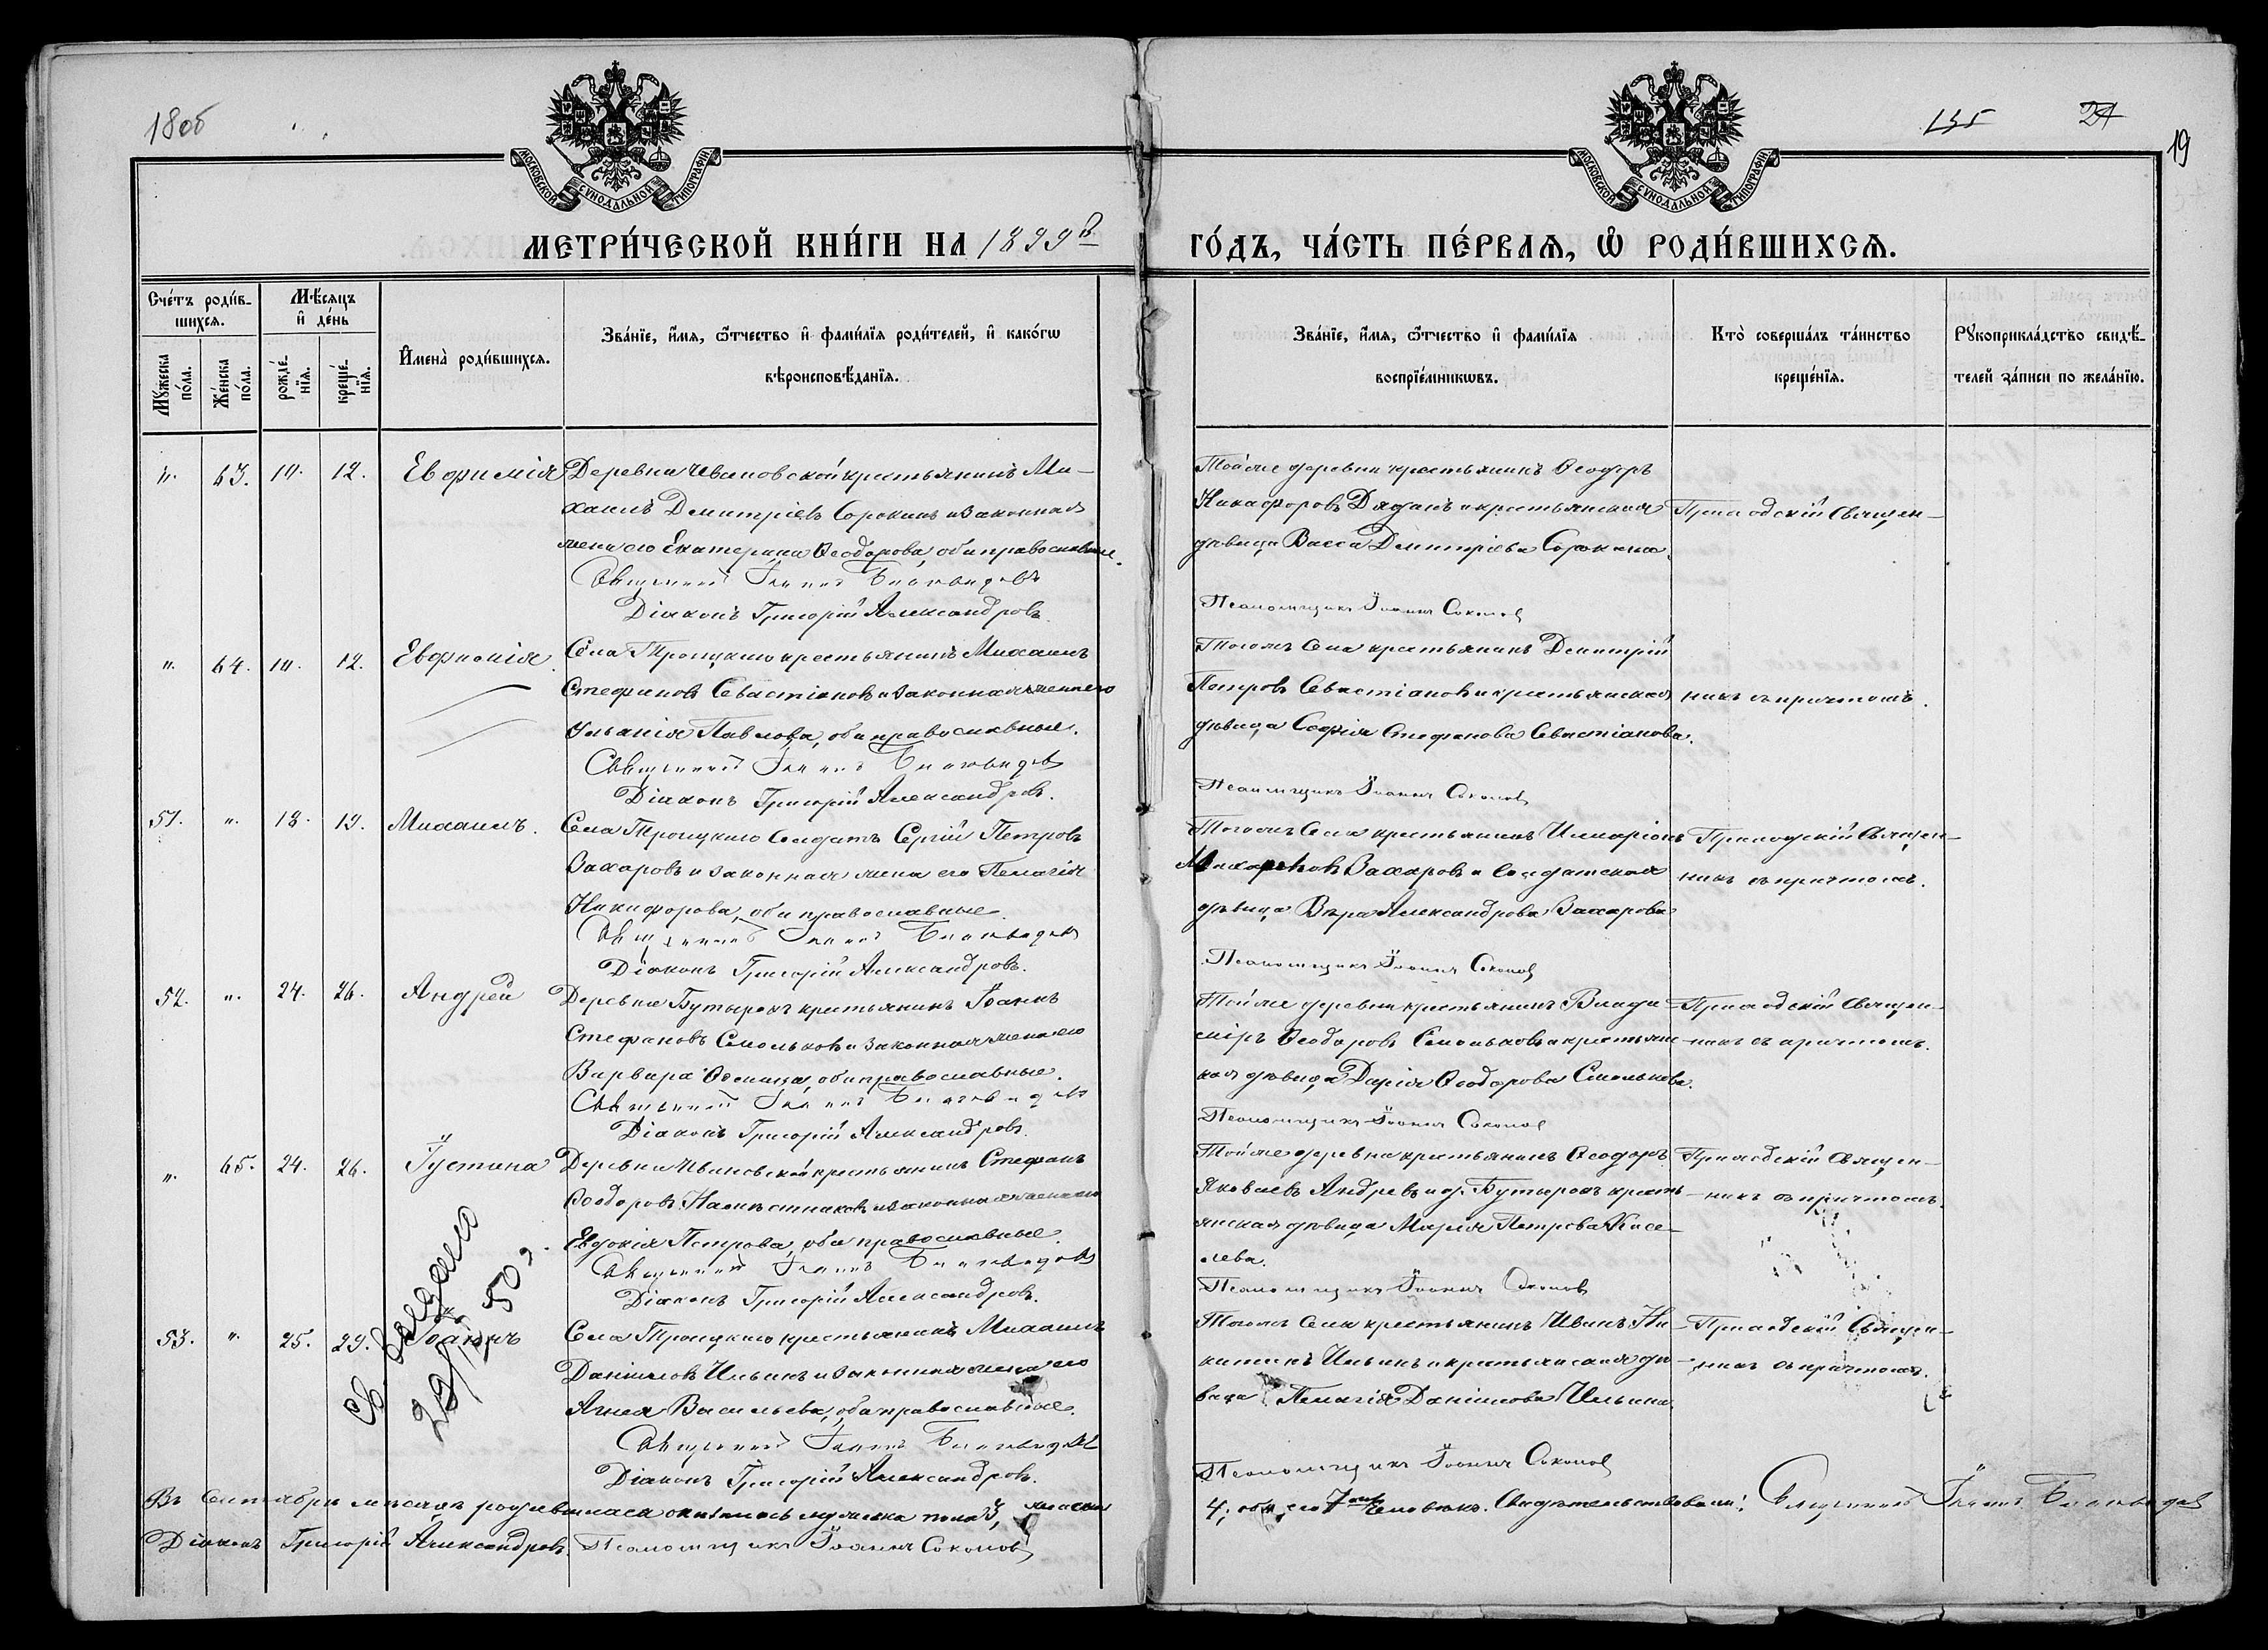 180б
135
24
19
МОСКОВСКОЙ СѴНОДАЛЬНОЙ ТИПОГРАФІИ
МОСКОВСКОЙ СѴНОДАЛЬНОЙ ТИПОГРАФІИ
МЕТРИ́ЧЕСКОЙ КНИ́ГИ НА 1899й
ГО́ДЪ, ЧА́СТЬ ПЕ́РВАѦ, Ѡ҆ РОДИ́ВШИХСѦ.
Сче́тъ роди́в-
шихсѧ.
Мꙋ́жеска по́ла.
Же́нска по́ла.
Мѣ́сѧцъ
и҆ де́нь
рожде́нїѧ.
креще́нїѧ.
И҆мена̀ роди́вшихсѧ.
Зва́нїе, и҆́мѧ, ѻ҆́тчество и҆ фами́лїѧ роди́телей, и҆ како́гѡ
вѣроисповѣ́данїѧ.
Зва́нїе, и҆́мѧ, ѻ҆́тчество и҆ фами́лїѧ
воспрїе́мникѡвъ.
Кто̀ соверша́лъ та́инство
креще́нїѧ.
Рꙋкоприкла́дство свидѣ́-
телей за́писи по жела́нїю.
„ 63. 10. 12. Евфимія Деревни Ивановской крестьянинъ Ми-
хаилъ Димитріевъ Сорокинъ и законная
жена его Екатерина Ѳеодорова, оба православные.
Священникъ Іоаннъ
Діаконъ Григорій Александровъ.
Тойже деревни крестьянинъ Ѳеодоръ
Никифоровъ и крестьянская
дѣвица Васса Димитріева Сорокина.
Псаломщикъ Іоаннъ Соколовъ
Приходскій Священ-
„ 64. 10. 12. Евфимія. Села Троицкаго крестьянинъ Михаилъ
Стефановъ Севастіановъ и законная жена его
Уліанія Павлова, оба православные.
Священникъ Іоаннъ
Діаконъ Григорій Александровъ.
Тогожъ Села крестьянинъ Димитрій
Петровъ Севастіановъ и крестьянская
дѣвица Софія Стефанова Севастіанова.
Псаломщикъ Іоаннъ Соколовъ
никъ съ причтомъ.
51. „ 18. 19. Михаилъ. Села Троицкаго Солдатъ Сергій Петровъ
Захаровъ и законная жена его Пелагія
Никифорова, оба православные.
Священникъ Іоаннъ
Діаконъ Григорій Александровъ.
Тогожъ Села крестьянинъ Иларіонъ
Захаровъ и Солдатская
дѣвица Вѣра Александрова Захарова
Псаломщикъ Іоаннъ Соколовъ
Приходскій Священ-
никъ съ причтомъ.
52. „ 24. 26. Андрей Деревни Бутырокъ крестьянинъ Іоаннъ
Стефановъ Смольковъ и законная жена его
Варвара Ѳомина, оба православные.
Священникъ Іоаннъ
Діаконъ Григорій Александровъ.
Тойже деревни крестьянинъ Влади-
міръ Ѳеодоровъ Смольковъ и крестьянс-
кая дѣвица Дарія Ѳеодорова Смолькова.
Псаломщикъ Іоаннъ Соколовъ
Приходскій Священ-
никъ съ причтомъ.
„ 65. 24. 26. Іустина Деревни Ивановской крестьянинъ Стефанъ
Ѳеодоровъ Намѣстниковъ и законная жена его
Евдокія Петрова, оба православные.
Священникъ Іоаннъ
Діаконъ Григорій Александровъ.
Тойже деревни крестьянинъ Ѳеодоръ
Яковлевъ Андреевъ и д. Бутырокъ кресть-
янская дѣвица Марія Петрова Кисе-
лева.
Псаломщикъ Іоаннъ Соколовъ
Приходскій Священ-
никъ съ причтомъ.
53. „ 25. 29. Іоаннъ Села Троицкаго крестьянинъ Михаилъ
Даніиловъ Ильинъ и законная жена его
Агнія Васильева, оба православные.
Священникъ Іоаннъ
Діаконъ Григорій Александровъ.
Тогожъ Села крестьянинъ Иванъ Ни-
китинъ Ильинъ и крестьянская дѣ-
вица Пелагія Даніилова Ильина.
Псаломщикъ Іоаннъ Соколовъ
Приходскій Священ-
никъ съ причтомъ.
Св. выдано
Въ Сентябрѣ мѣсяцѣ родившихся оказалось мужеска пола 3, женска
4; обоего 7 человѣкъ. Свидѣтельствовали: Священникъ Іоаннъ
Діаконъ Григорій Александровъ. Псаломщикъ Іоаннъ Соколовъ